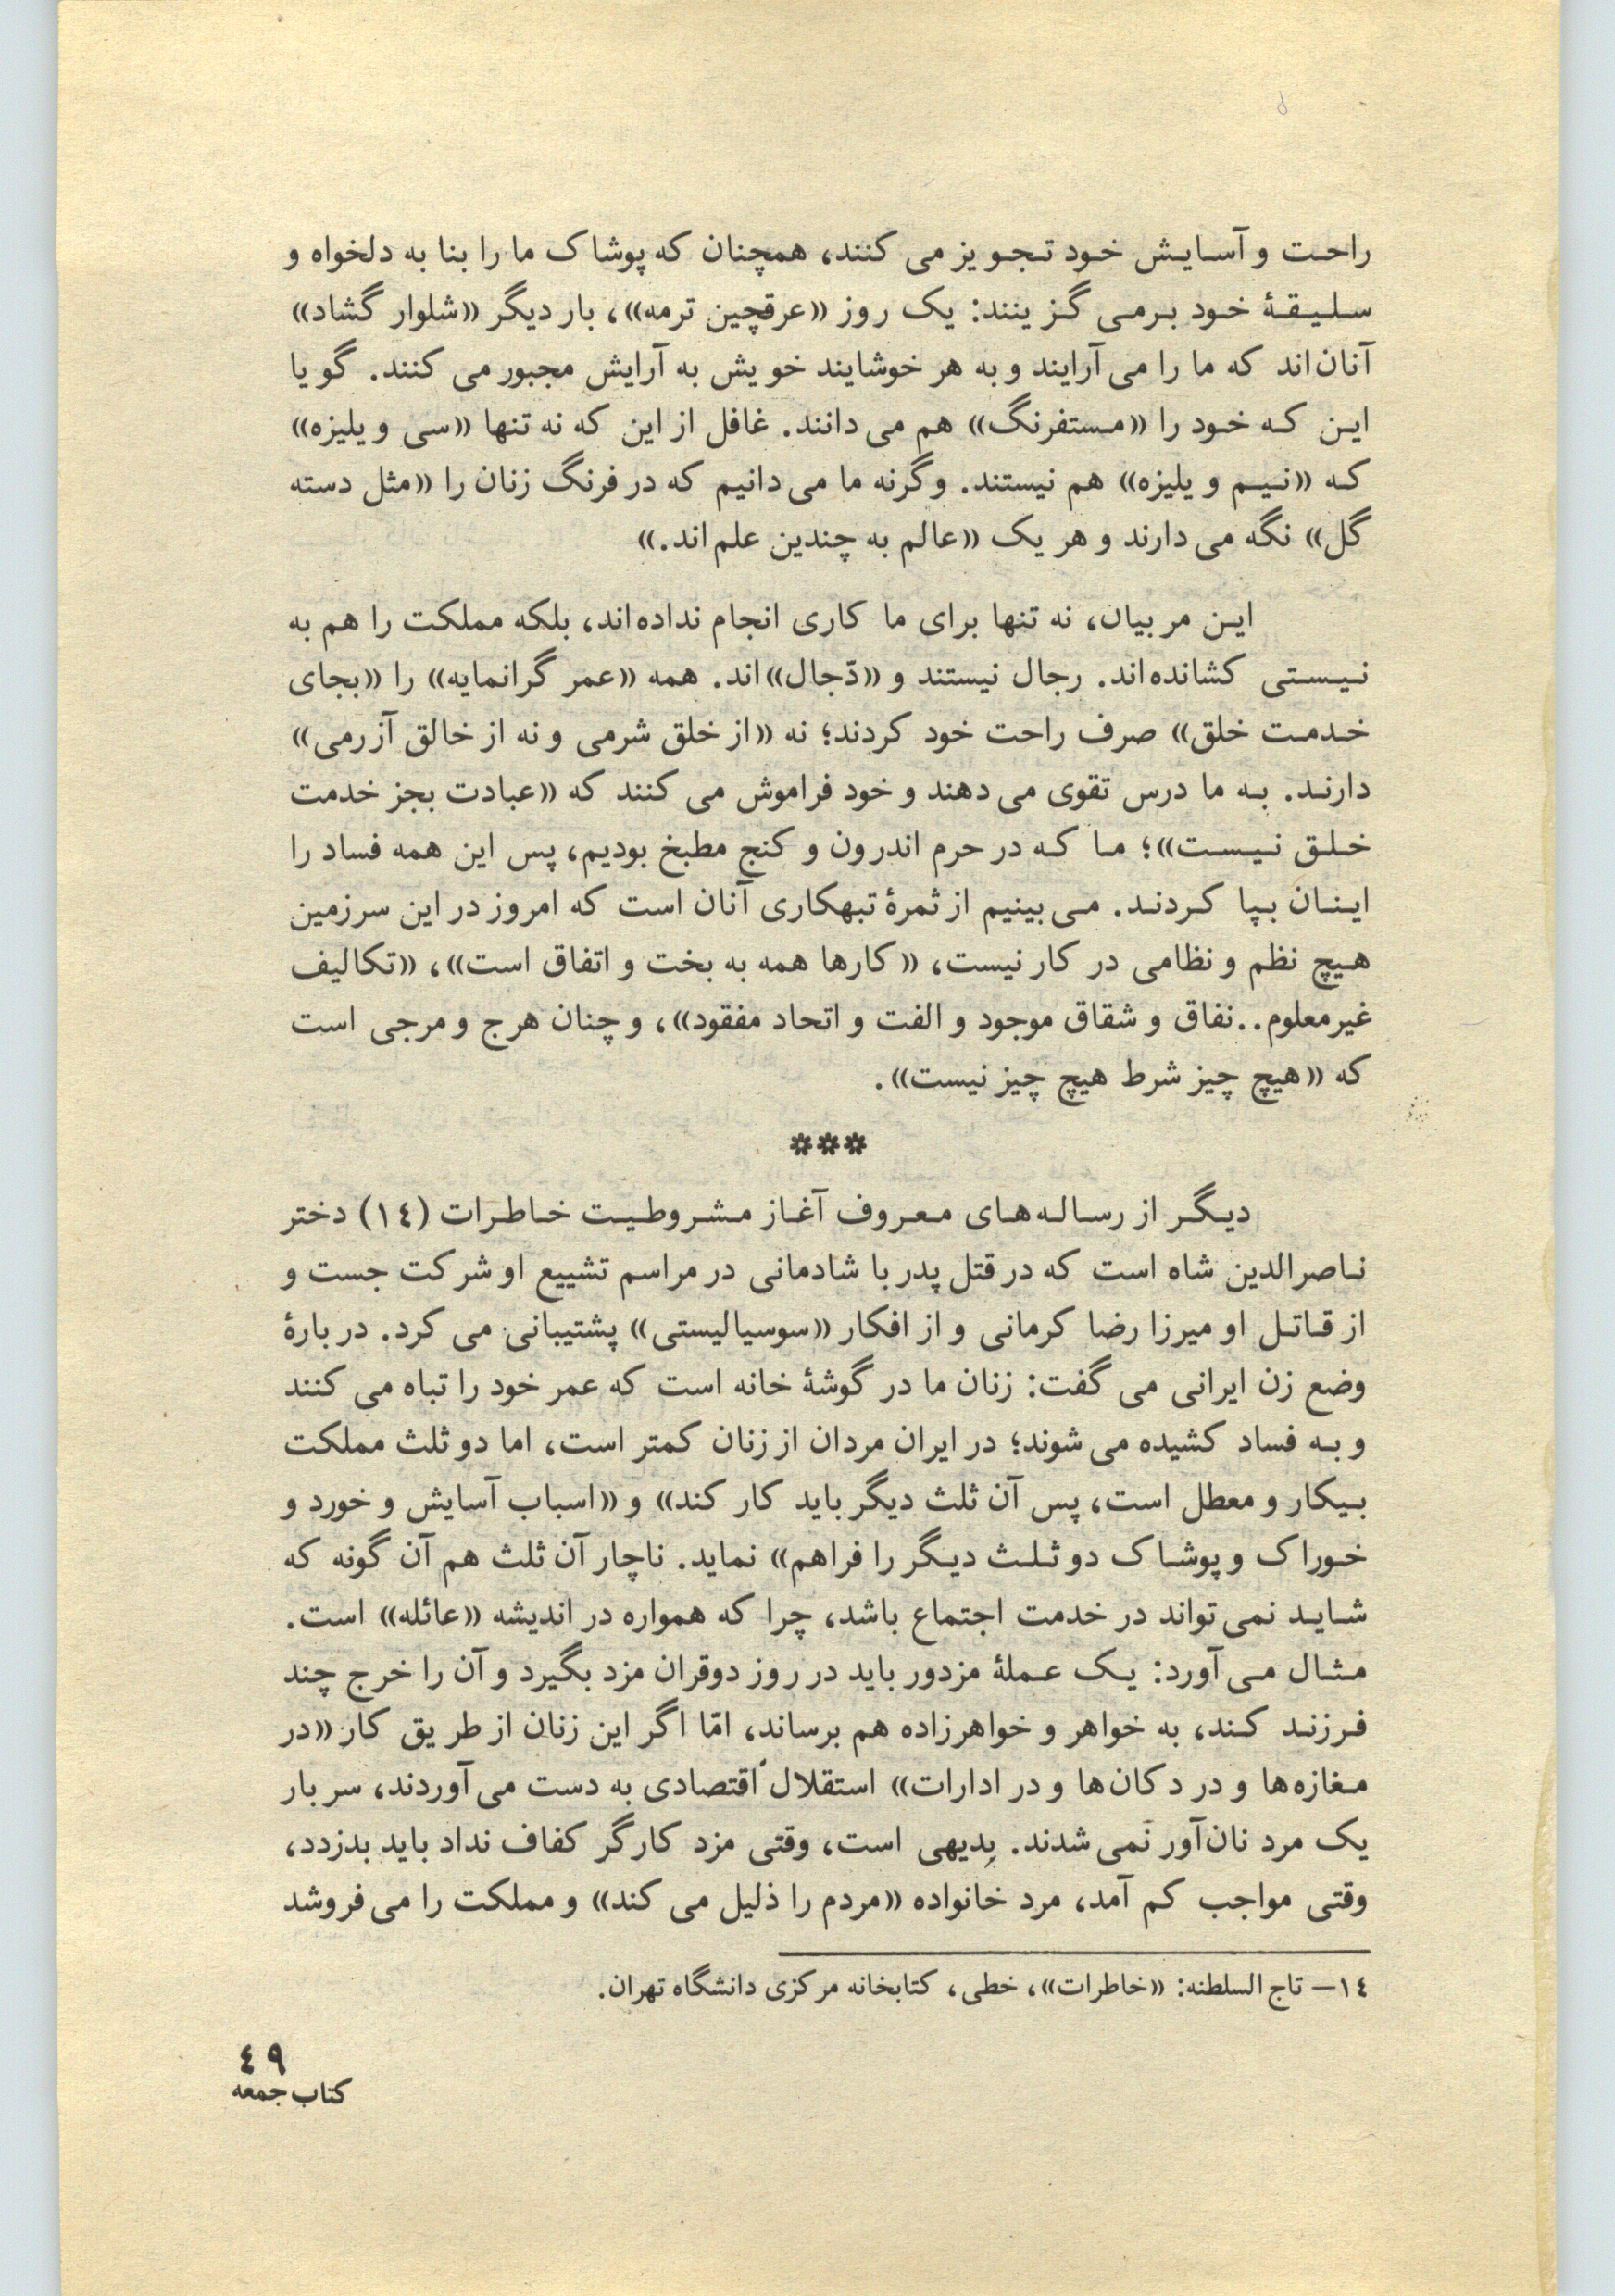 راحت و آسایش خود تجویز می کنند، همچنان که پوشاک ما را بنا به دلخواه و
سلیقهٔ خود برمی گزینند: یک روز «عرقچین ترمه»، بار دیگر «شلوار گشاد»
آنان‌اند که ما را می‌آرایند و به هر خوشایند خویش به آرایش مجبور می کنند. گویا
این که خود را «مستفرنگ» هم می دانند. غافل از این که نه تنها «سی ویلیزه»
که «نیم ویلیزه» هم نیستند. وگرنه ما می دانیم که در فرنگ زنان را «مثل دسته
گل» نگه می دارند و هر یک «عالم به چندین علم‌اند.»
این مربیان، نه تنها برای ما کاری انجام نداده‌اند، بلکه مملکت را هم به
نیستی کشانده‌اند. رجال نیستند و «دّجال»‌اند. همه «عمر گرانمایه» را «بجای
خدمت خلق» صرف راحت خود کردند؛ نه «از خلق شرمی و نه از خالق آزرمی»
دارند. به ما درس تقوی می دهند و خود فراموش می کنند که «عبادت بجز خدمت
خلق نیست»؛ ما که در حرم اندرون و کنج مطبخ بودیم، پس این همه فساد را
اینان بپا کردند. می‌بینیم از ثمرهٔ تبهکاری آنان است که امروز در این سرزمین
هیچ نظم و نظامی در کار نیست، «کارها همه به بخت و اتفاق است»، «تکالیف
غیرمعلوم..نفاق و شقاق موجود و الفت و اتحاد مفقود»، و چنان هرج و مرجی است
که «هیچ چیز شرط هیچ چیز نیست».
***
دیگر از رساله‌های معروف آغاز مشروطیت خاطرات (۱٤) دختر
ناصرالدین شاه است که در قتل پدر با شادمانی در مراسم تشییع او شرکت جست و
از قاتل او میرزا رضا کرمانی و از افکار «سوسیالیستی» پشتیبانی می کرد. دربارهٔ
وضع زن ایرانی می گفت: زنان ما در گوشهٔ خانه است که عمر خود را تباه می کنند
و به فساد کشیده می شوند؛ در ایران مردان از زنان کمتر است، اما دو ثلث مملکت
بیکار و معطل است، پس آن ثلث دیگر باید کار کند» و «اسباب آسایش و خورد و
خوراک و پوشاک دو ثلث دیگر را فراهم» نماید. ناچار آن ثلث هم آن گونه که
شاید نمی تواند در خدمت اجتماع باشد، چرا که همواره در اندیشه «عائله» است.
مثال می‌آورد: یک عملهٔ مزدور باید در روز دوقران مزد بگیرد و آن را خرج چند
فرزند کند، به خواهر و خواهرزاده هم برساند، امّا اگر این زنان از طریق کار «در
مغازه‌ها و در دکان‌ها و در ادارات» استقلال اقتصادی به دست می‌آوردند، سر بار
یک مرد نان‌آور نمی شدند. بدیهی است، وقتی مزد کارگر کفاف نداد باید بدزدد،
وقتی مواجب کم آمد، مرد خانواده «مردم را ذلیل می کند» و مملکت را می فروشد
۱٤– تاج السلطنه: «خاطرات»، خطی، کتابخانه مرکزی دانشگاه تهران.
٤۹
کتاب جمعه